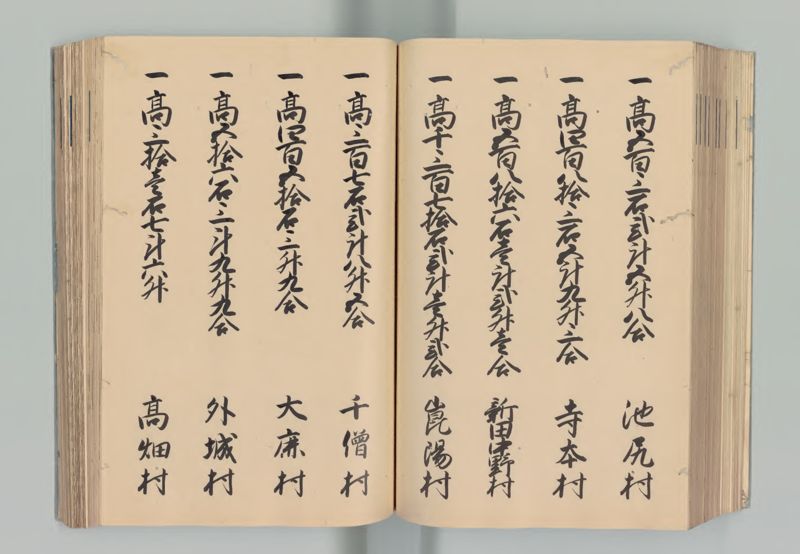 一高五百三石弐斗五升八合 池尻村
一高四百八拾三石五斗九升三合 寺本村
一高五百八拾六石壱斗弐升壱合 新田中野村
一高千三百七拾石弐斗壱升弐合 崑陽村
一高三百七石弐斗八升五合 千僧村
一高四百五拾石三升九合 大麻村
一高五拾六石三斗九升九合 外城村
一高三拾壱石七斗六升 高畑村